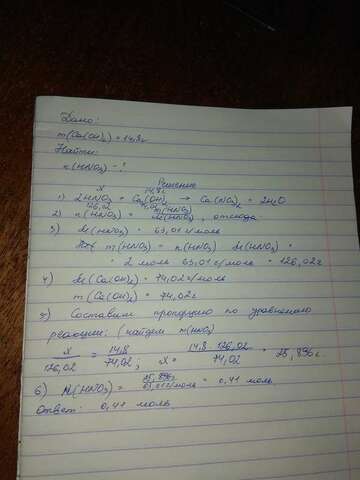 Дано:
m(Ca(OH)₂) = 14,8г
Найти:
n(HNO₃) - ?
Решение
x 14,8г
1) 2HNO₃ + Ca(OH)₂ → Ca(NO₃)₂ + 2H₂O
126,02 74,02
2) n(HNO₃) = m(HNO₃) / M(HNO₃), отсюда
3) M(HNO₃) = 63,01 г/моль
m(HNO₃) = n(HNO₃) · M(HNO₃) =
= 2 моль · 63,01 г/моль = 126,02г
4) M(Ca(OH)₂) = 74,02 г/моль
m(Ca(OH)₂) = 74,02г
5) Составим пропорцию по уравнению
реакции: (найдем m(HNO₃)
x / 126,02 = 14,8 / 74,02 ; x = 14,8 · 126,02 / 74,02 = 25,896г.
6) N(HNO₃) = 25,896г / 63,012 г/моль = 0,41 моль
Ответ: 0,41 моль.